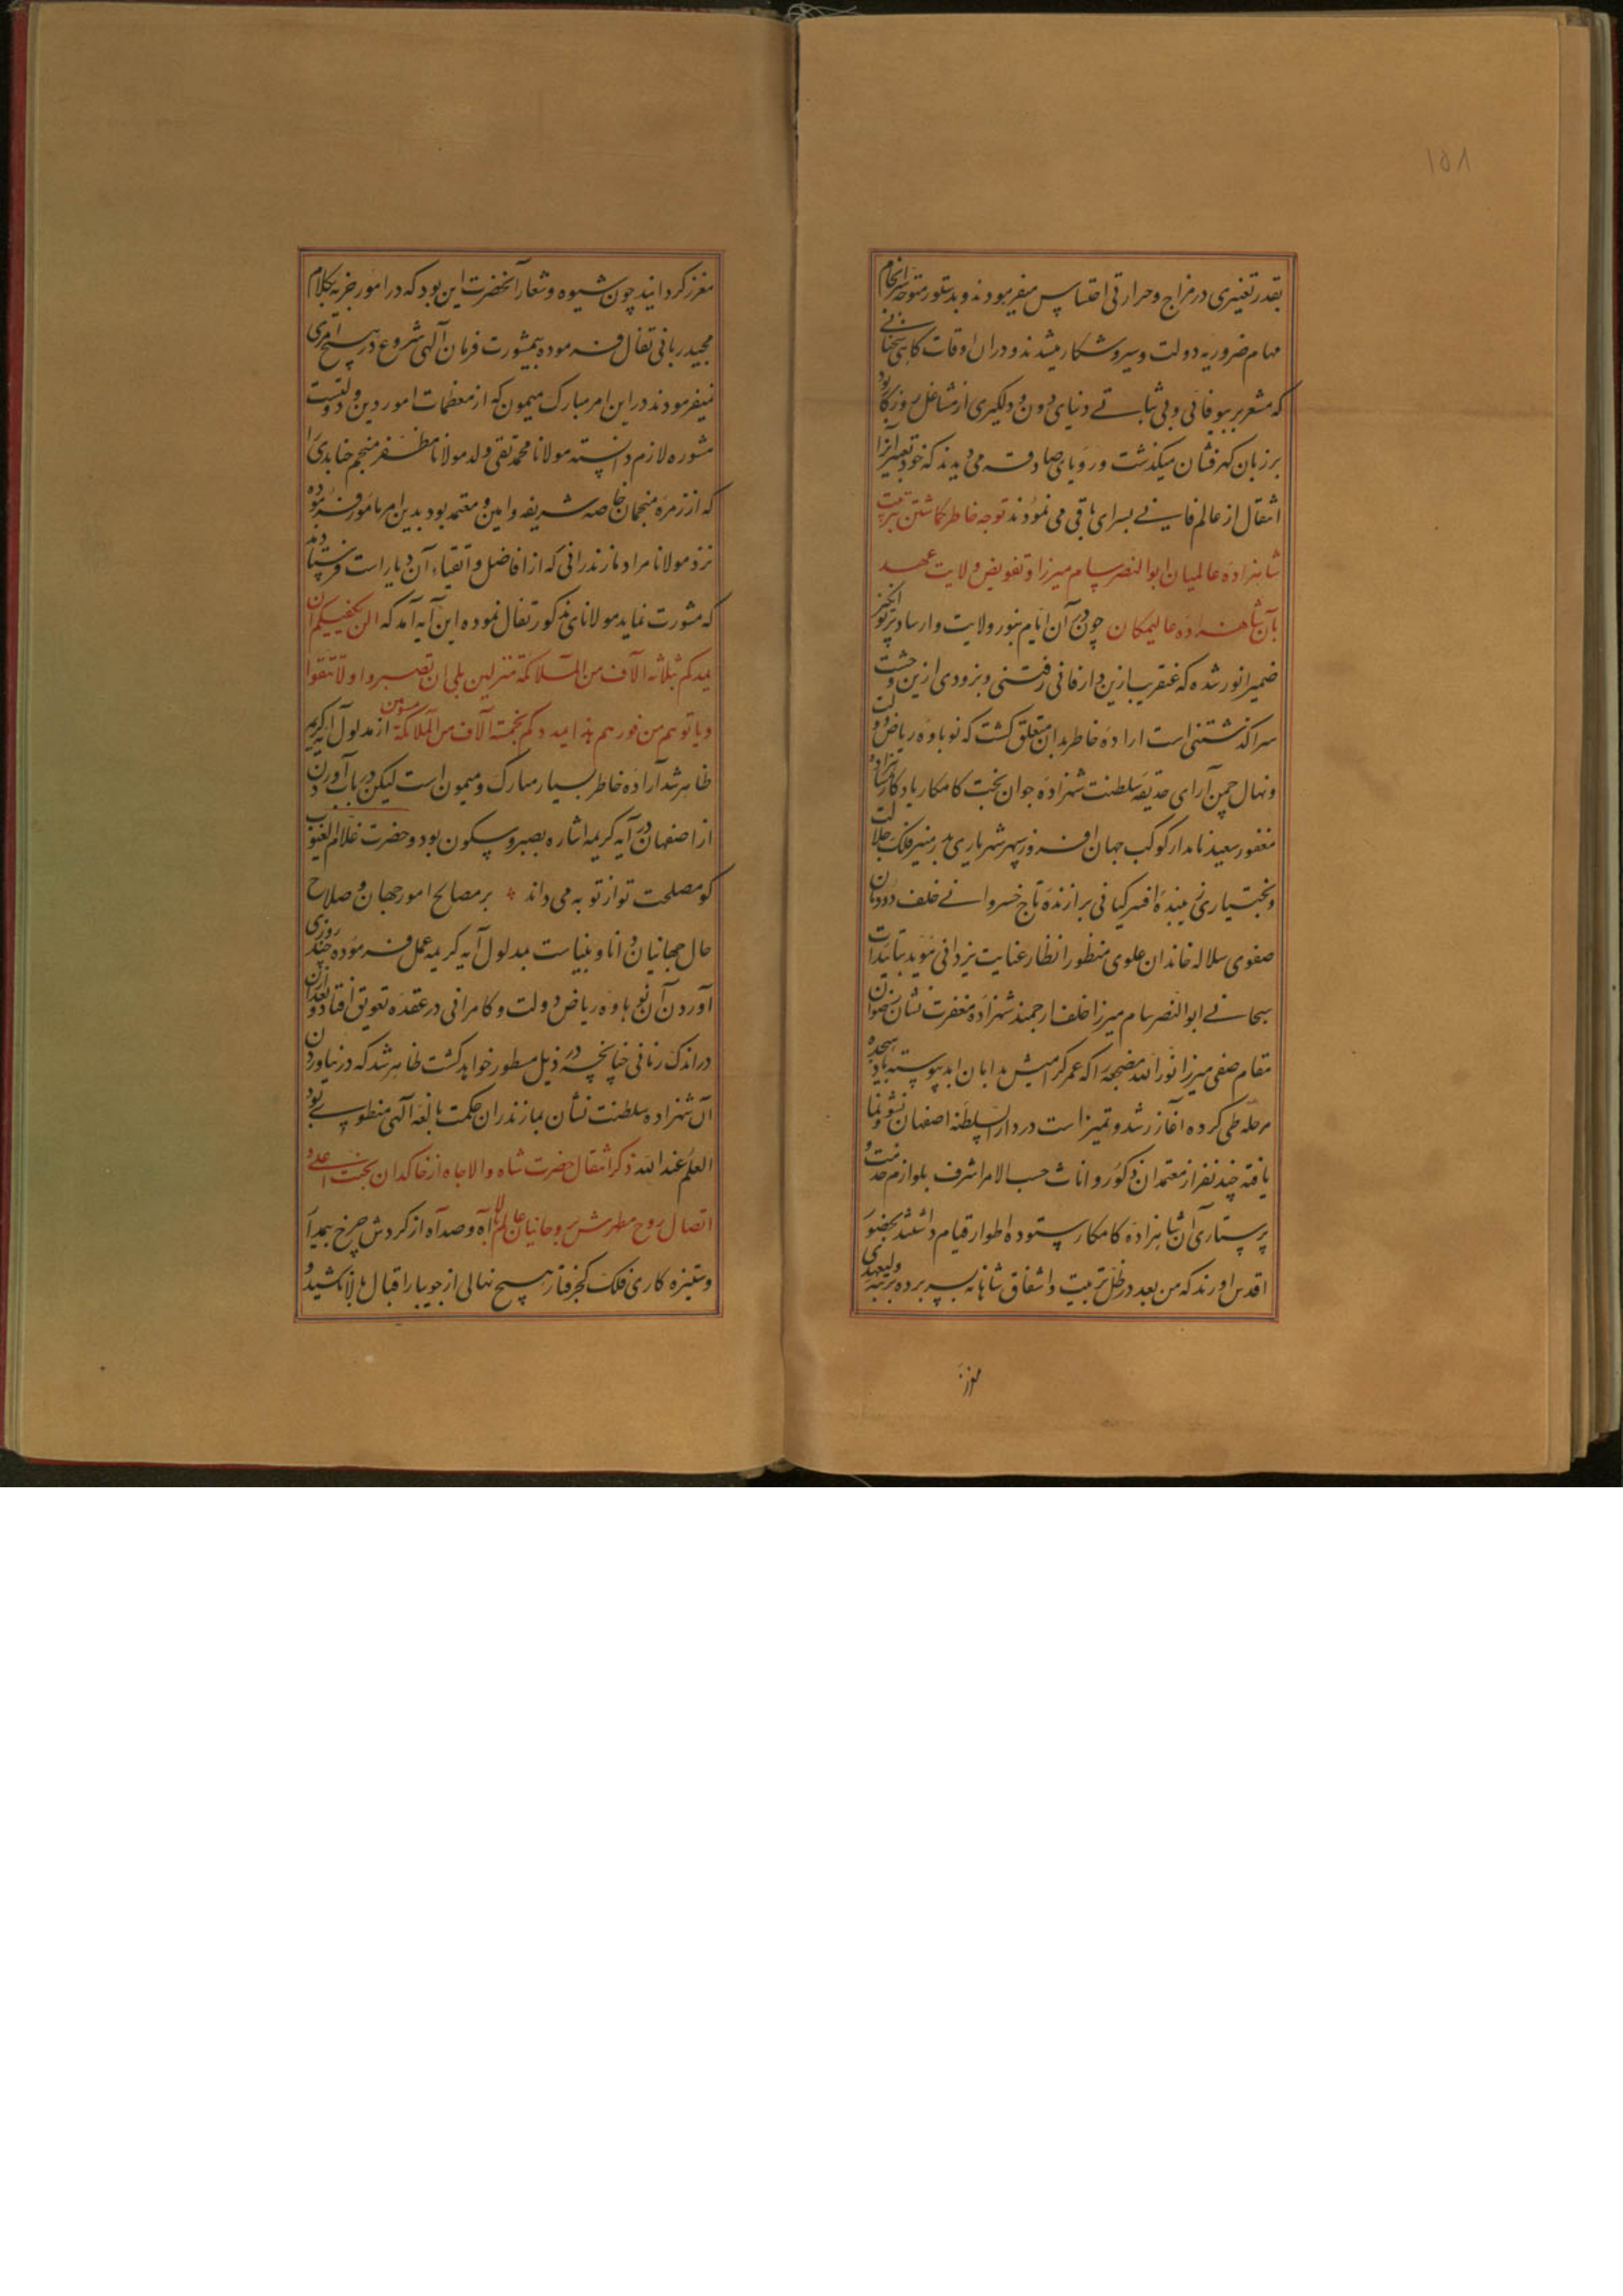 ۱۵۸
بقدر تغییری در مزاج و حرارتی احساس میفرمودند و بدستور متوجه سرانجام
مهام ضروریه دولت و سیر و شکار میشدند و در ان اوقات کاهی سخنانی
که مشعر بر بیوفائی و بی ثباتے دنیای دون و دلکیری از مشاغل روزکار بود
بر زبان کهرفشان میکذشت و رویای صادقه می دیدند که خود تعبیر آنرا
انتقال از عالم فانے بسرای باقی می نمودند توجه خاطر کماشتن بتربیت
شاهزاده عالمیان ابوالنصر سام میرزا و تفویض ولایت عهد
بآن شاهزاده عالیمکان چون در آن ایام بنور ولایت و ارساد پرتو انکیز
ضمیر انور شده که عنقریب ازین دار فانی رفتنی و بزودی ازین وحشت
سرا کذشتنی است اراده خاطر بدان متعلق کشت که نوباوه ریاض دولت
و نهال چمن آرای حدیقه سلطنت شهزاده جوان بخت کامکار یادکار شاهزاده
مغفور سعید نامدار کوکب جهان افروز سپهر شهریاری بدر منیر فلک جلالت
و بختیاری زیبنده افسر کیانی برازنده تاج خسروانے خلف دودمان
صفوی سلاله خاندان علوی منظور انظار عنایت یزدانی مؤید بتائیدات
سبحانے ابوالنصر سام میرزا خلف ارجمند شهزاده مغفرت نشان رضوان
مقام صفی میرزا نورالله مضجعه را که عمر کرامیش بدابان ابد پیوسته باد هیجده
مرحله طی کرده آغاز رشد و تمیز است در دار السلطنه اصفهان نشو و نما
یافته چند نفر از معتمدان ذکور و اناث حسب الامر اشرف بلوازم خدمت و
پرستاری آن شاهزاده کامکار ستوده اطوار قیام داشتند بحضور
اقدس اورند که من بعد در ظل تربیت و اشفاق شاهانه بسر برده برتبه ولیعهدی
معزز
معزز کردانید چون شیوه و شعار آنحضرت این بود که در امور جزیه بکلام
مجید ربانی تفال فرموده بیمشورت فرمان آلهی شروع در هیچ امری
نمیفرمودند در این امر مبارک میمون که از معظمات امور دین و دولتست
مشوره لازم دانسته مولانا محمدتقی ولد مولانا مظفر منجم جنابدی را
که از زمره منجمان خاصه شریفه و امین و معتمد بود بدین امر مامور فرموده
نزد مولانا مراد مازندرانی که از افاضل و اتقیاء آن دیار است فرستادند
که مشورت نماید مولانای مذکور تفال نموده این آیه آمد که الن یکفیکم ان
یمدکم بثلاثه الاف من الملائکة منزلین بلی ان تصبروا و لا تتقوا
و یاتوهم من فورهم هذا یمددکم بخمسة الاف من الملائکة مسومین از مدلول آیه کریم
ظاهر شد آراده خاطر بسیار مبارک و میمون است لیکن در باب آوردن
از اصفهان در آیه کریمه اشاره بصبر و سکون بود و حضرت علام الغیوب
کو مصلحت تو از تو به می داند ٭ بر مصالح امور جهان و صلاح
حال جهانیان دانا و بیناست بمدلول آیه کریمه عمل فرموده چند روزی
آوردن آن نوباوه ریاض دولت و کامرانی در عقده تعویق افتاد و بعد از آن
در اندک زمانی چنانچه در ذیل مسطور خواهد کشت ظاهر شد که در نیاوردن
آن شهزاده سلطنت نشان بمازندران حکمت بالغه آلهی منطوی بود
العلم عندالله ذکر انتقال حضرت شاه والاجاه از خاکدان بجنت اعلے و
اتصال روح مطهرش بروحانیان عالم بالا آه و صد آه از کردش چرخ بیمدار
و ستیزه کاری فلک کجرفتار هیچ نهالی از جویبار اقبال بالا نکشید و